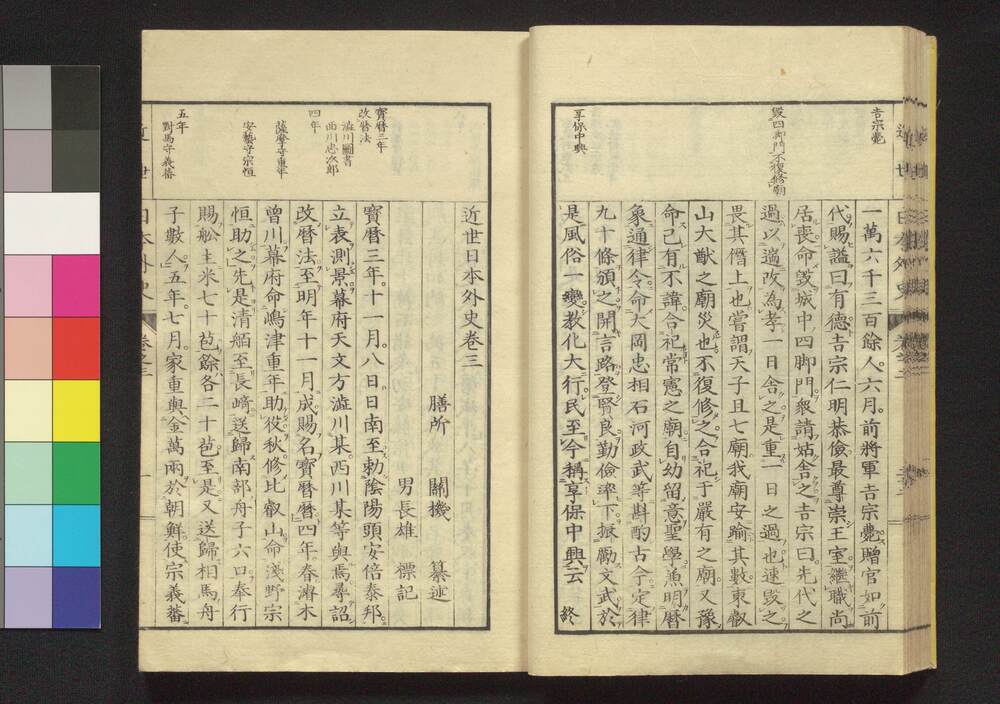 吉宗薨
毀四脚門不復修廟
享保中興
一萬六千三百餘人六月前將軍吉宗薨贈官如前
代賜謚曰有德吉宗仁明恭儉最尊崇王室繼職尚
居喪命毀城中四脚門衆請姑舍之吉宗曰先代之
過以遄改為孝一日舍之是重一日之過也速毀之
畏其僭上也嘗謂天子且七廟我廟安踰其數東叡
山大猷之廟災也不復修之合祀于嚴有之廟又豫
命己有不諱合祀常憲之廟自幼留意聖學兼明曆
象通律令命大岡忠相石河政武等斟酌古今定律
九十條頒之開言路登賢良勤儉率下振勵文武於
是風俗一變教化大行民至今稱享保中興云 終
寶曆三年
改曆法
澁川圖書
西川忠次郎
四年
薩摩守重年
安藝守宗恒
五年
對馬守義蕃
近世日本外史卷三
膳所 關機 纂述
男長雄 標記
寶曆三年十一月八日日南至勅陰陽頭安倍泰邦
立表測景幕府天文方澁川某西川某等與焉尋詔
改曆法至明年十一月成賜名寶曆曆四年春濬木
曾川幕府命嶋津重年助役秋修比叡山命淺野宗
恒助之先是清舶至長崎送歸南部舟子六口奉行
賜舩主米七十苞餘各二十苞至是又送歸相馬舟
子數人五年七月家重與金萬兩於朝鮮使宗義蕃